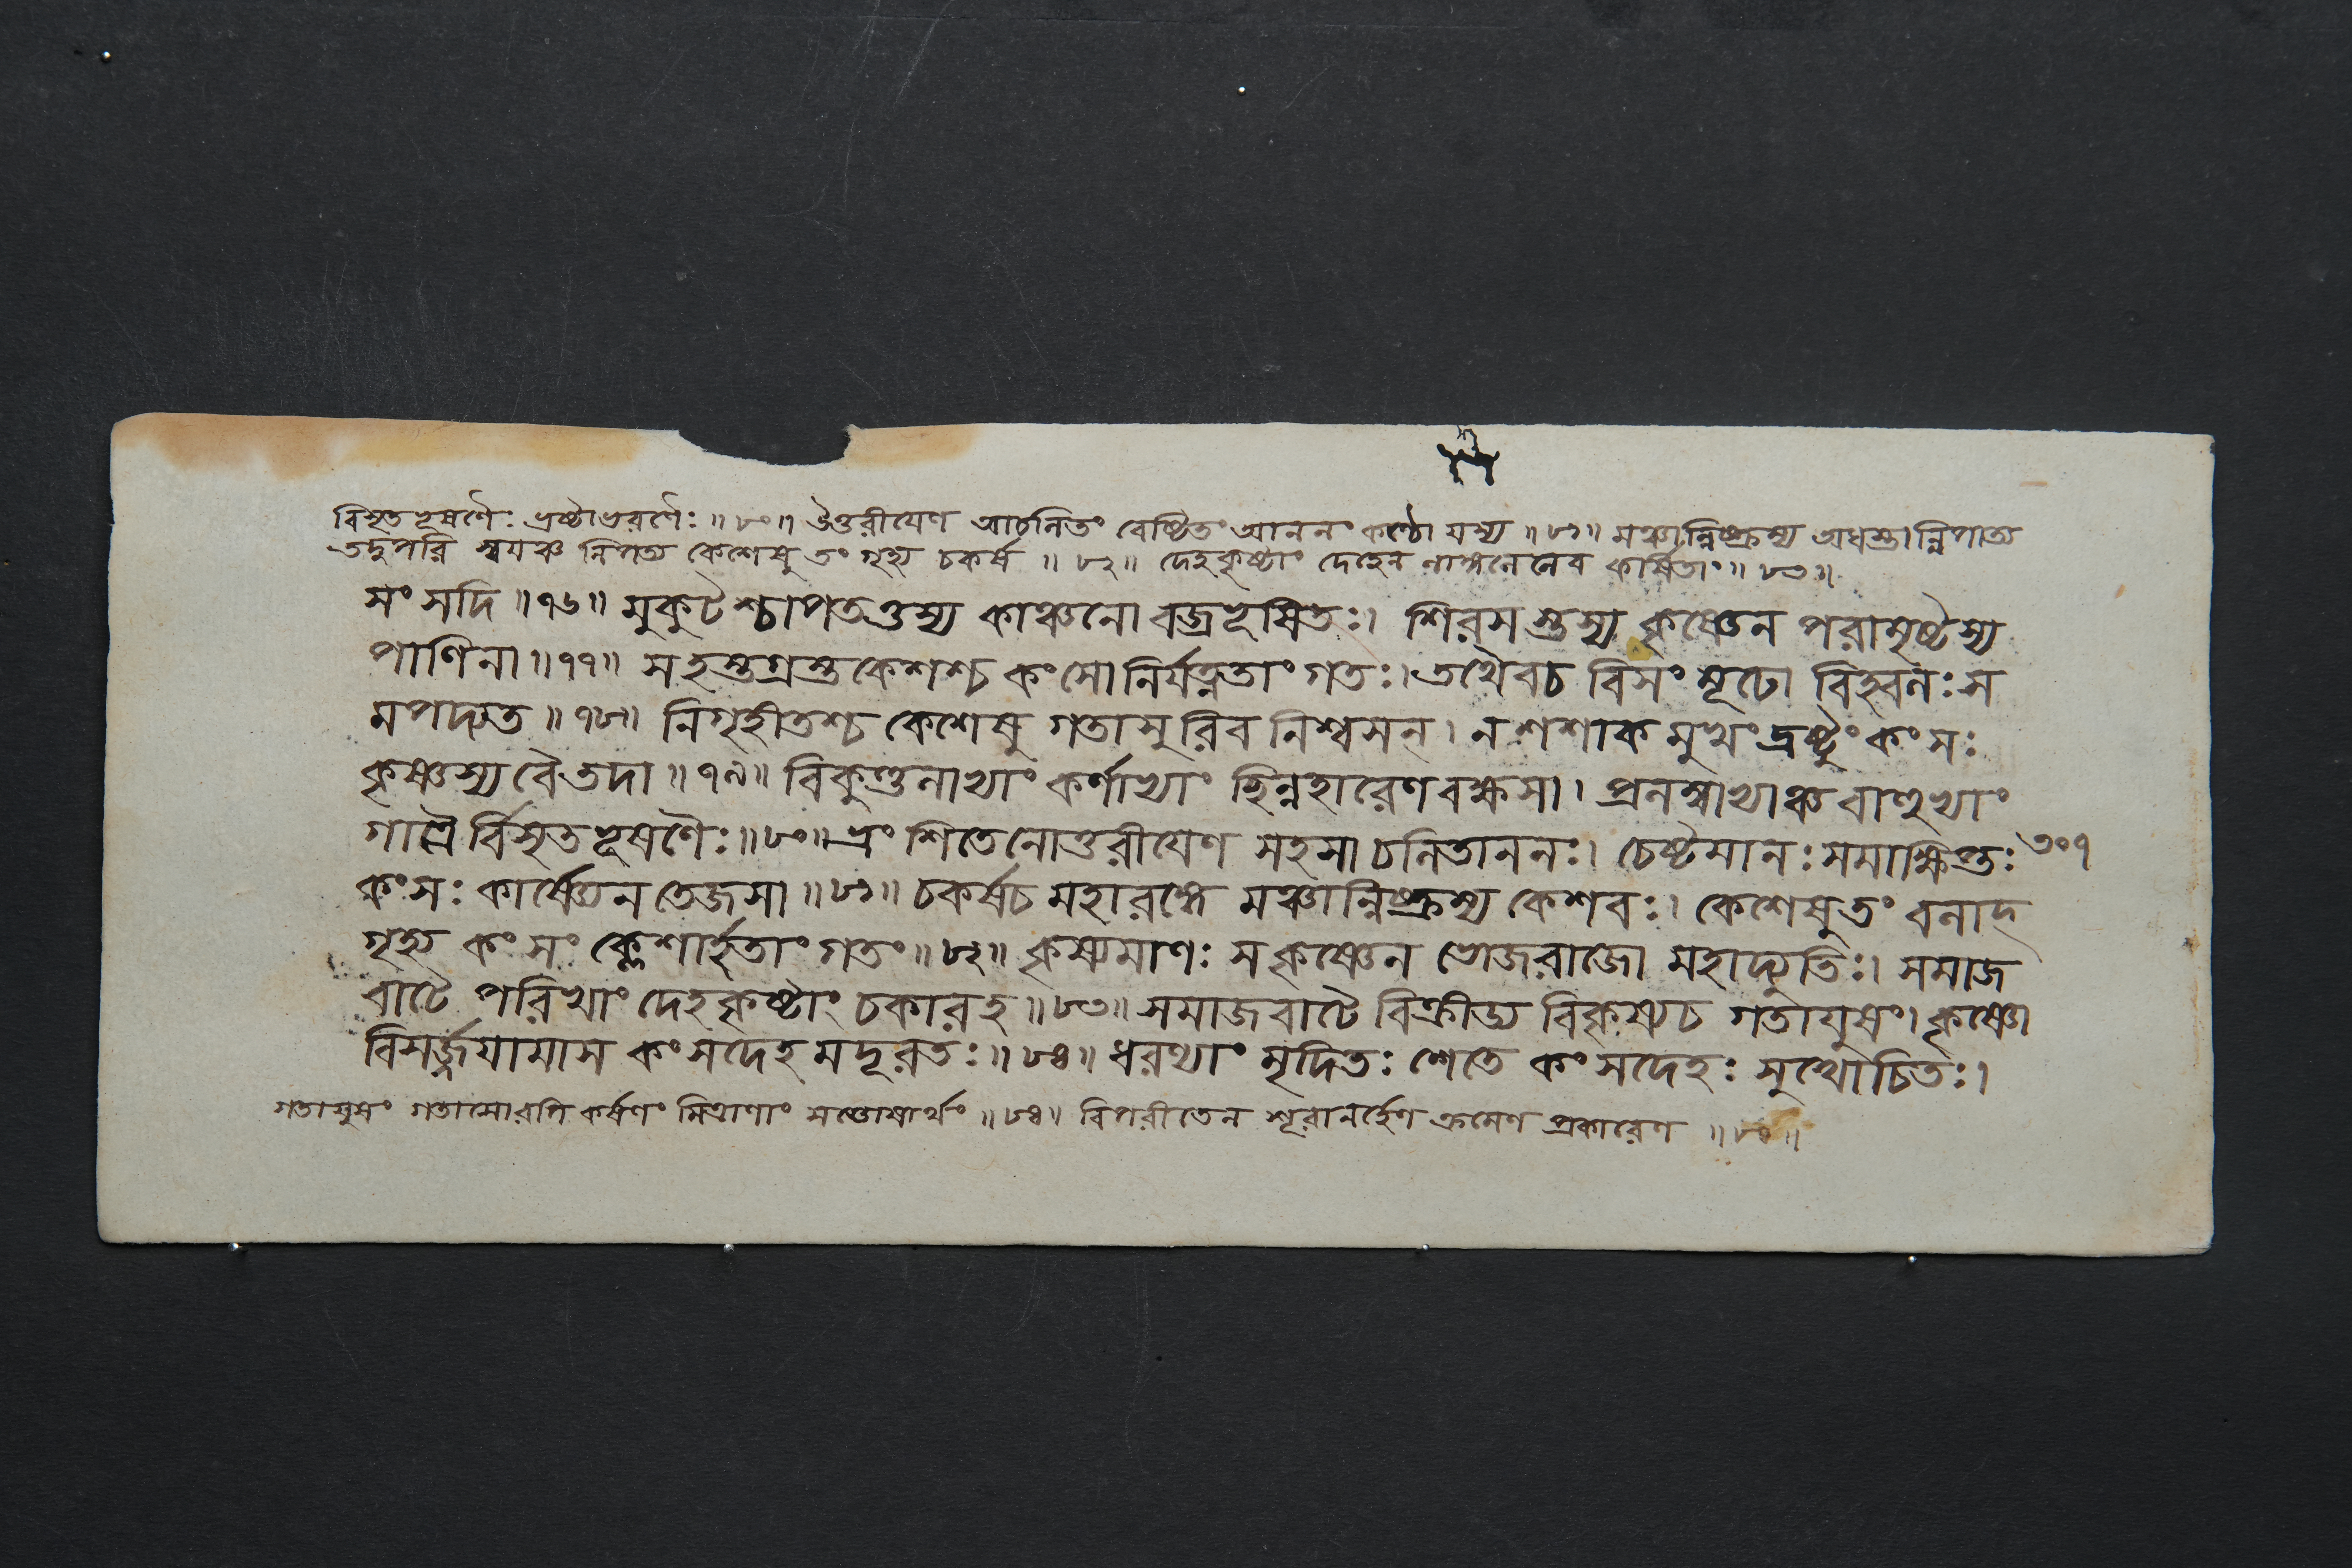 বিসৃতভূষণৈঃ ভ্রষ্টাভরণৈঃ ॥ ৮০॥ ঔত্তরীয়েণ আচলিতং বেষ্টিতং আননং কণ্ঠো যস্য ॥ ৮১॥ মঞ্চান্নিষ্ক্রম্য অধস্তান্নিপাত্য
তদুপরি স্বয়ঞ্চ নিপত্য কেশেষু তং গৃহ্য চকর্ষ ॥ ৮২॥ দেহকৃষ্টাং দেহেন কর্ষিতাং॥ ৮৩॥
সংসদি ॥৭৬॥ মুকুটশ্চাপতত্তস্য কাঞ্চনো বজ্রভূষিতঃ। শিরসস্তস্য কৃষ্ণেন পরামৃষ্টস্য
পাণিনা॥৭৭॥ সহস্তগ্রস্তকেশশ্চ কংসো নির্যত্নতাং গতঃ। তথৈবচ বিসংমূঢো বিহ্বলঃ স
মপদ্যত ॥৭৮॥ নিগৃহীতশ্চ কেশেষু গতাসুরিব নিশ্বসন্। ন শশাক মুখং দ্রষ্টুং কংসঃ
কৃষ্ণস্য বৈ তদা ॥৭৯॥ বিকুণ্ডলাভ্যাং কর্ণাভ্যাং ছিন্নহারেণ বক্ষসা। প্রলম্বাভ্যাঞ্চ বাহুভ্যাং
গাত্রৈর্বিসৃতভূষণৈঃ॥৮০॥ ভ্রংশিতেনোত্তরীয়েণ সহসা চলিতাননঃ। চেষ্টমানঃ সমাক্ষিপ্তঃ ৩০৭
কংসঃ কার্ষ্ণেন তেজসা ॥৮১॥ চকর্ষচ মহারঙ্গে মঞ্চান্নিষ্ক্রম্য কেশবঃ। কেশেষু তং বলাদ্
গৃহ্য কংসং ক্লেশার্হতাং গতং॥৮২॥ কৃষ্যমাণঃ স কৃষ্ণেন ভোজরাজো মহাদ্যুতিঃ। সমাজ
বাটে পরিখাং দেহকৃষ্টাং চকারহ ॥৮৩॥ সমাজবাটে বিক্রীড্য বিকৃষ্যচ গতায়ুষং। কৃষ্ণো
বিসর্জ্জয়ামাস কংসদেহমদূরতঃ॥৮৪॥ ধরণ্যাং মৃদিতঃ শেতে কংসদেহঃ সুখোচিতঃ।
গতায়ুষং গতাসোরপি কর্ষণং মিত্রাণাং সন্তোষার্থং ॥৮৪॥ বিপরীতেন শূরানর্হেণ ক্রমেণ প্রকারেণ ॥